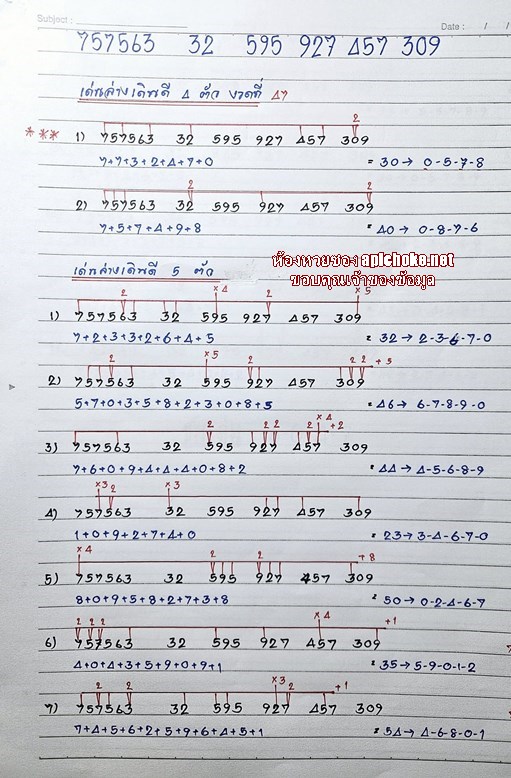 Subject :
Date : / /
757563 32 595 927 457 309
เด่นล่างเดินดี 4 ตัว งวดที่ 47
2
*** 1) 757563 32 595 927 457 309
7+7+3+2+4+7+0 = 30 → 0-5-7-8
2 2
2) 757563 32 595 927 457 309
7+5+7+4+9+8 = 40 → 0-8-7-6
ห้องหวยของ apichoke.net
ขอบคุณเจ้าของข้อมูล
เด่นล่างเดินดี 5 ตัว
2 ×4 2 ×5
1) 757563 32 595 927 457 309
7+2+3+3+2+6+4+5 = 32 → 2-3-6-7-0
2 ×5 2 2 2 +3
2) 757563 32 595 927 457 309
5+7+0+3+5+8+2+3+0+8+5 = 46 → 6-7-8-9-0
2 2 2 2 ×4 +2
3) 757563 32 595 927 457 309
7+6+0+9+4+4+4+0+8+2 = 44 → 4-5-6-8-9
×3 2 ×3
4) 757563 32 595 927 457 309
1+0+9+2+7+4+0 = 23 → 3-4-6-7-0
×4 2 2 +8
5) 757563 32 595 927 457 309
8+0+9+5+8+2+7+3+8 = 50 → 0-2-4-6-7
2 2 2 ×4 +1
6) 757563 32 595 927 457 309
4+0+4+3+5+9+0+9+1 = 35 → 5-9-0-1-2
2 2 ×3 2 +1
7) 757563 32 595 927 457 309
7+4+5+6+2+5+9+6+4+5+1 = 54 → 4-6-8-0-1